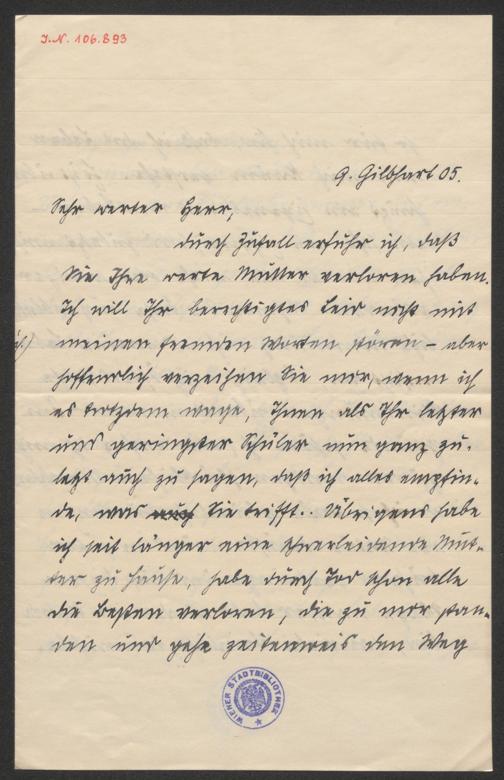 J.N. 106.893
9. Gilbhart 05.
Sehr werter Herr,
durch Zufall erfuhr ich, daß
Sie Ihre werte Mutter verloren haben.
Ich will Ihr berechtigtes Leid nicht mit
meinen fremden Worten stören – aber
hoffentlich verzeihen Sie mir, wenn ich
es trotzdem wage, Ihnen als Ihr letzter
und geringster Schüler nun ganz zu-
letzt auch zu sagen, daß ich alles empfin-
de, was auch Sie trifft.. Übrigens habe
ich seit länger eine schwerleidende Mut-
ter zu Hause, habe durch Tod schon alle
die Besten verloren, die zu mir stan-
den und gehe zeitenweis den Weg
WIENER STADTBIBLIOTHEK